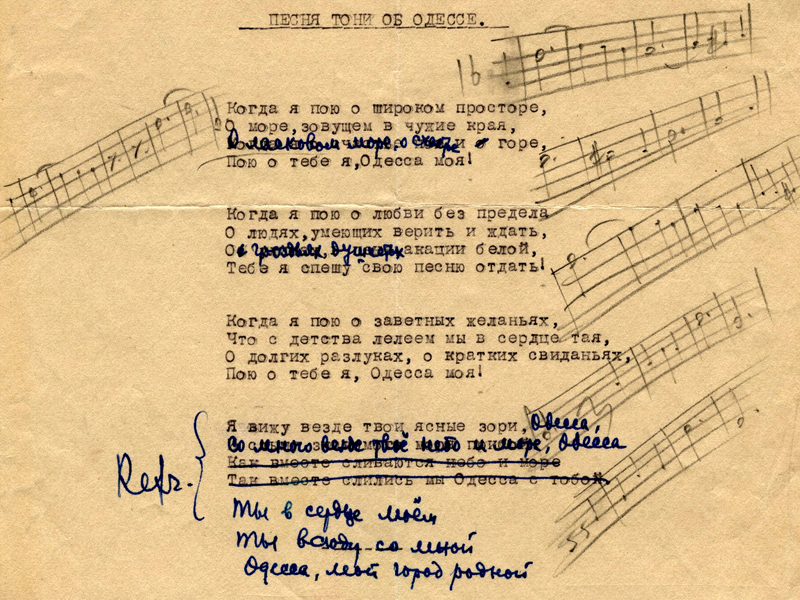 ПЕСНЯ ТОНИ ОБ ОДЕССЕ.
16
Когда я пою о широком просторе,
О море, зовущем в чужие края,
О ласковом море, о горе,
Пою о тебе я,Одесса моя!
Когда я пою о любви без предела
О людях,умеющих верить и ждать,
О гроздьях душистых акации белой,
Тебе я спешу свою песню отдать!
Когда я пою о заветных желаньях,
Что с детства лелеем мы в сердце тая,
О долгих разлуках, о кратких свиданьях,
Пою о тебе я, Одесса моя!
Я вижу везде твои ясные зори, Одесса,
Со мною везде твоё небо и море, Одесса
Как вместе сливаются небо и море
Так вместе слились мы Одесса с тобой.
Refr.
Ты в сердце моём
Ты всюду со мной
Одесса, мой город родной